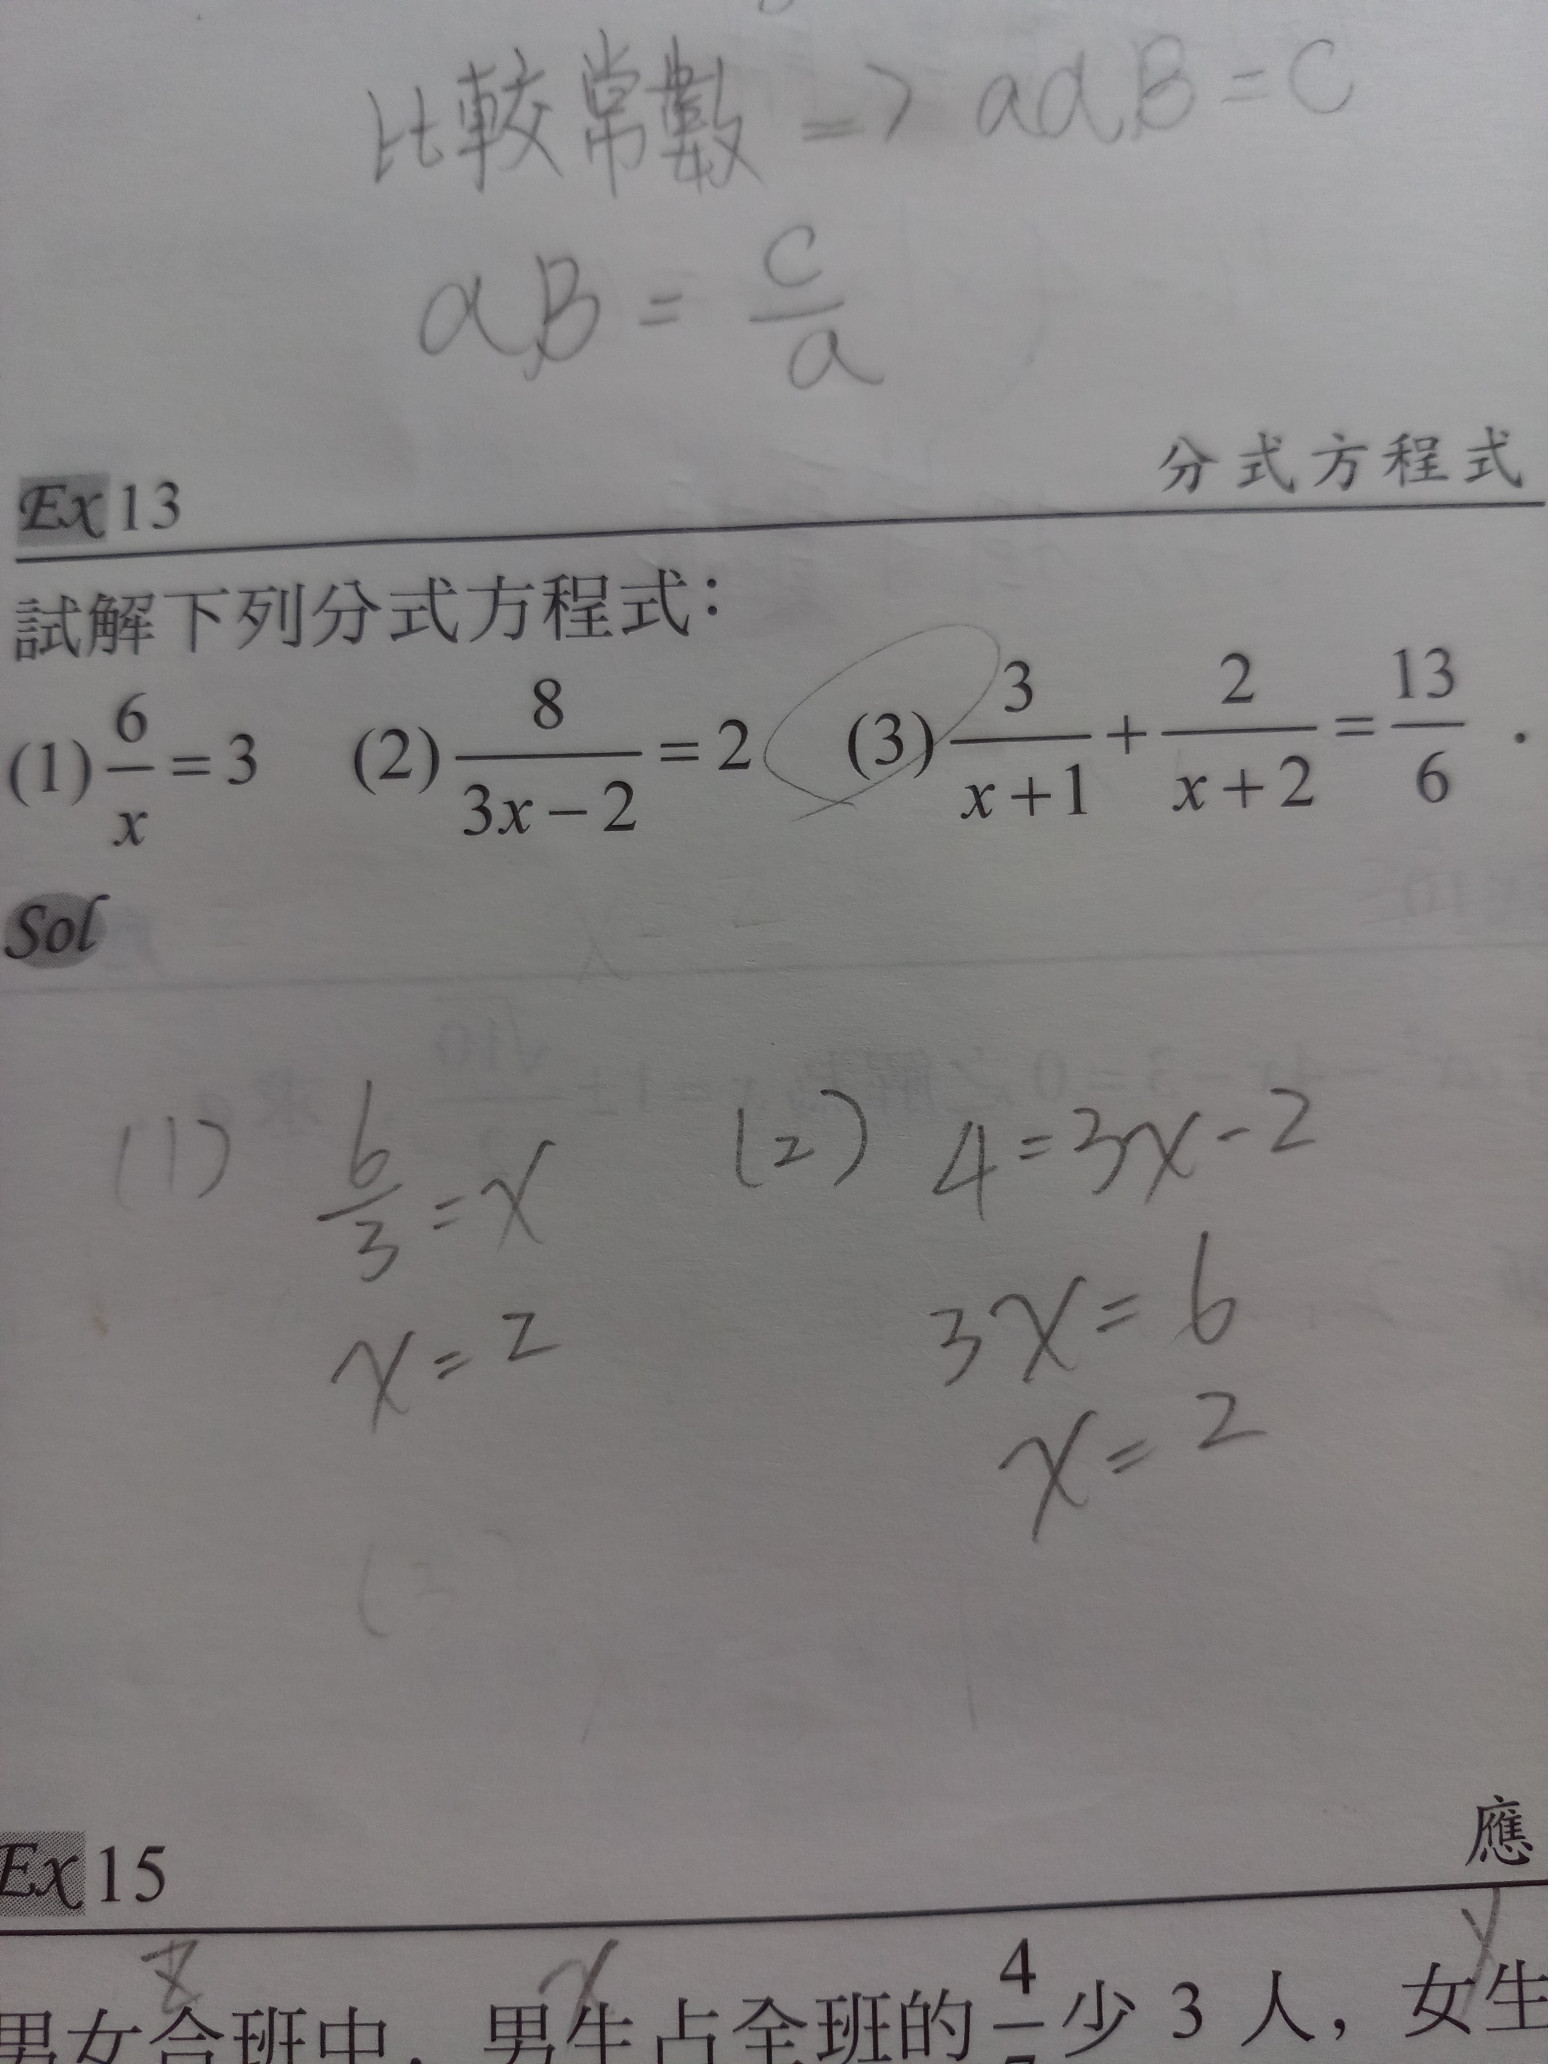 比較常數 => aαβ = c
αβ = c/a
Ex 13 分式方程式
試解下列分式方程式：
(1) 6/x = 3 (2) 8/(3x−2) = 2 (3) 3/(x+1) + 2/(x+2) = 13/6 .
Sol
(1) 6/3 = x (2) 4 = 3x - 2
x = 2 3x = 6
x = 2
(3)
Ex 15 應
z x y
男女合班中，男生占全班的 4/7 少 3 人，女生